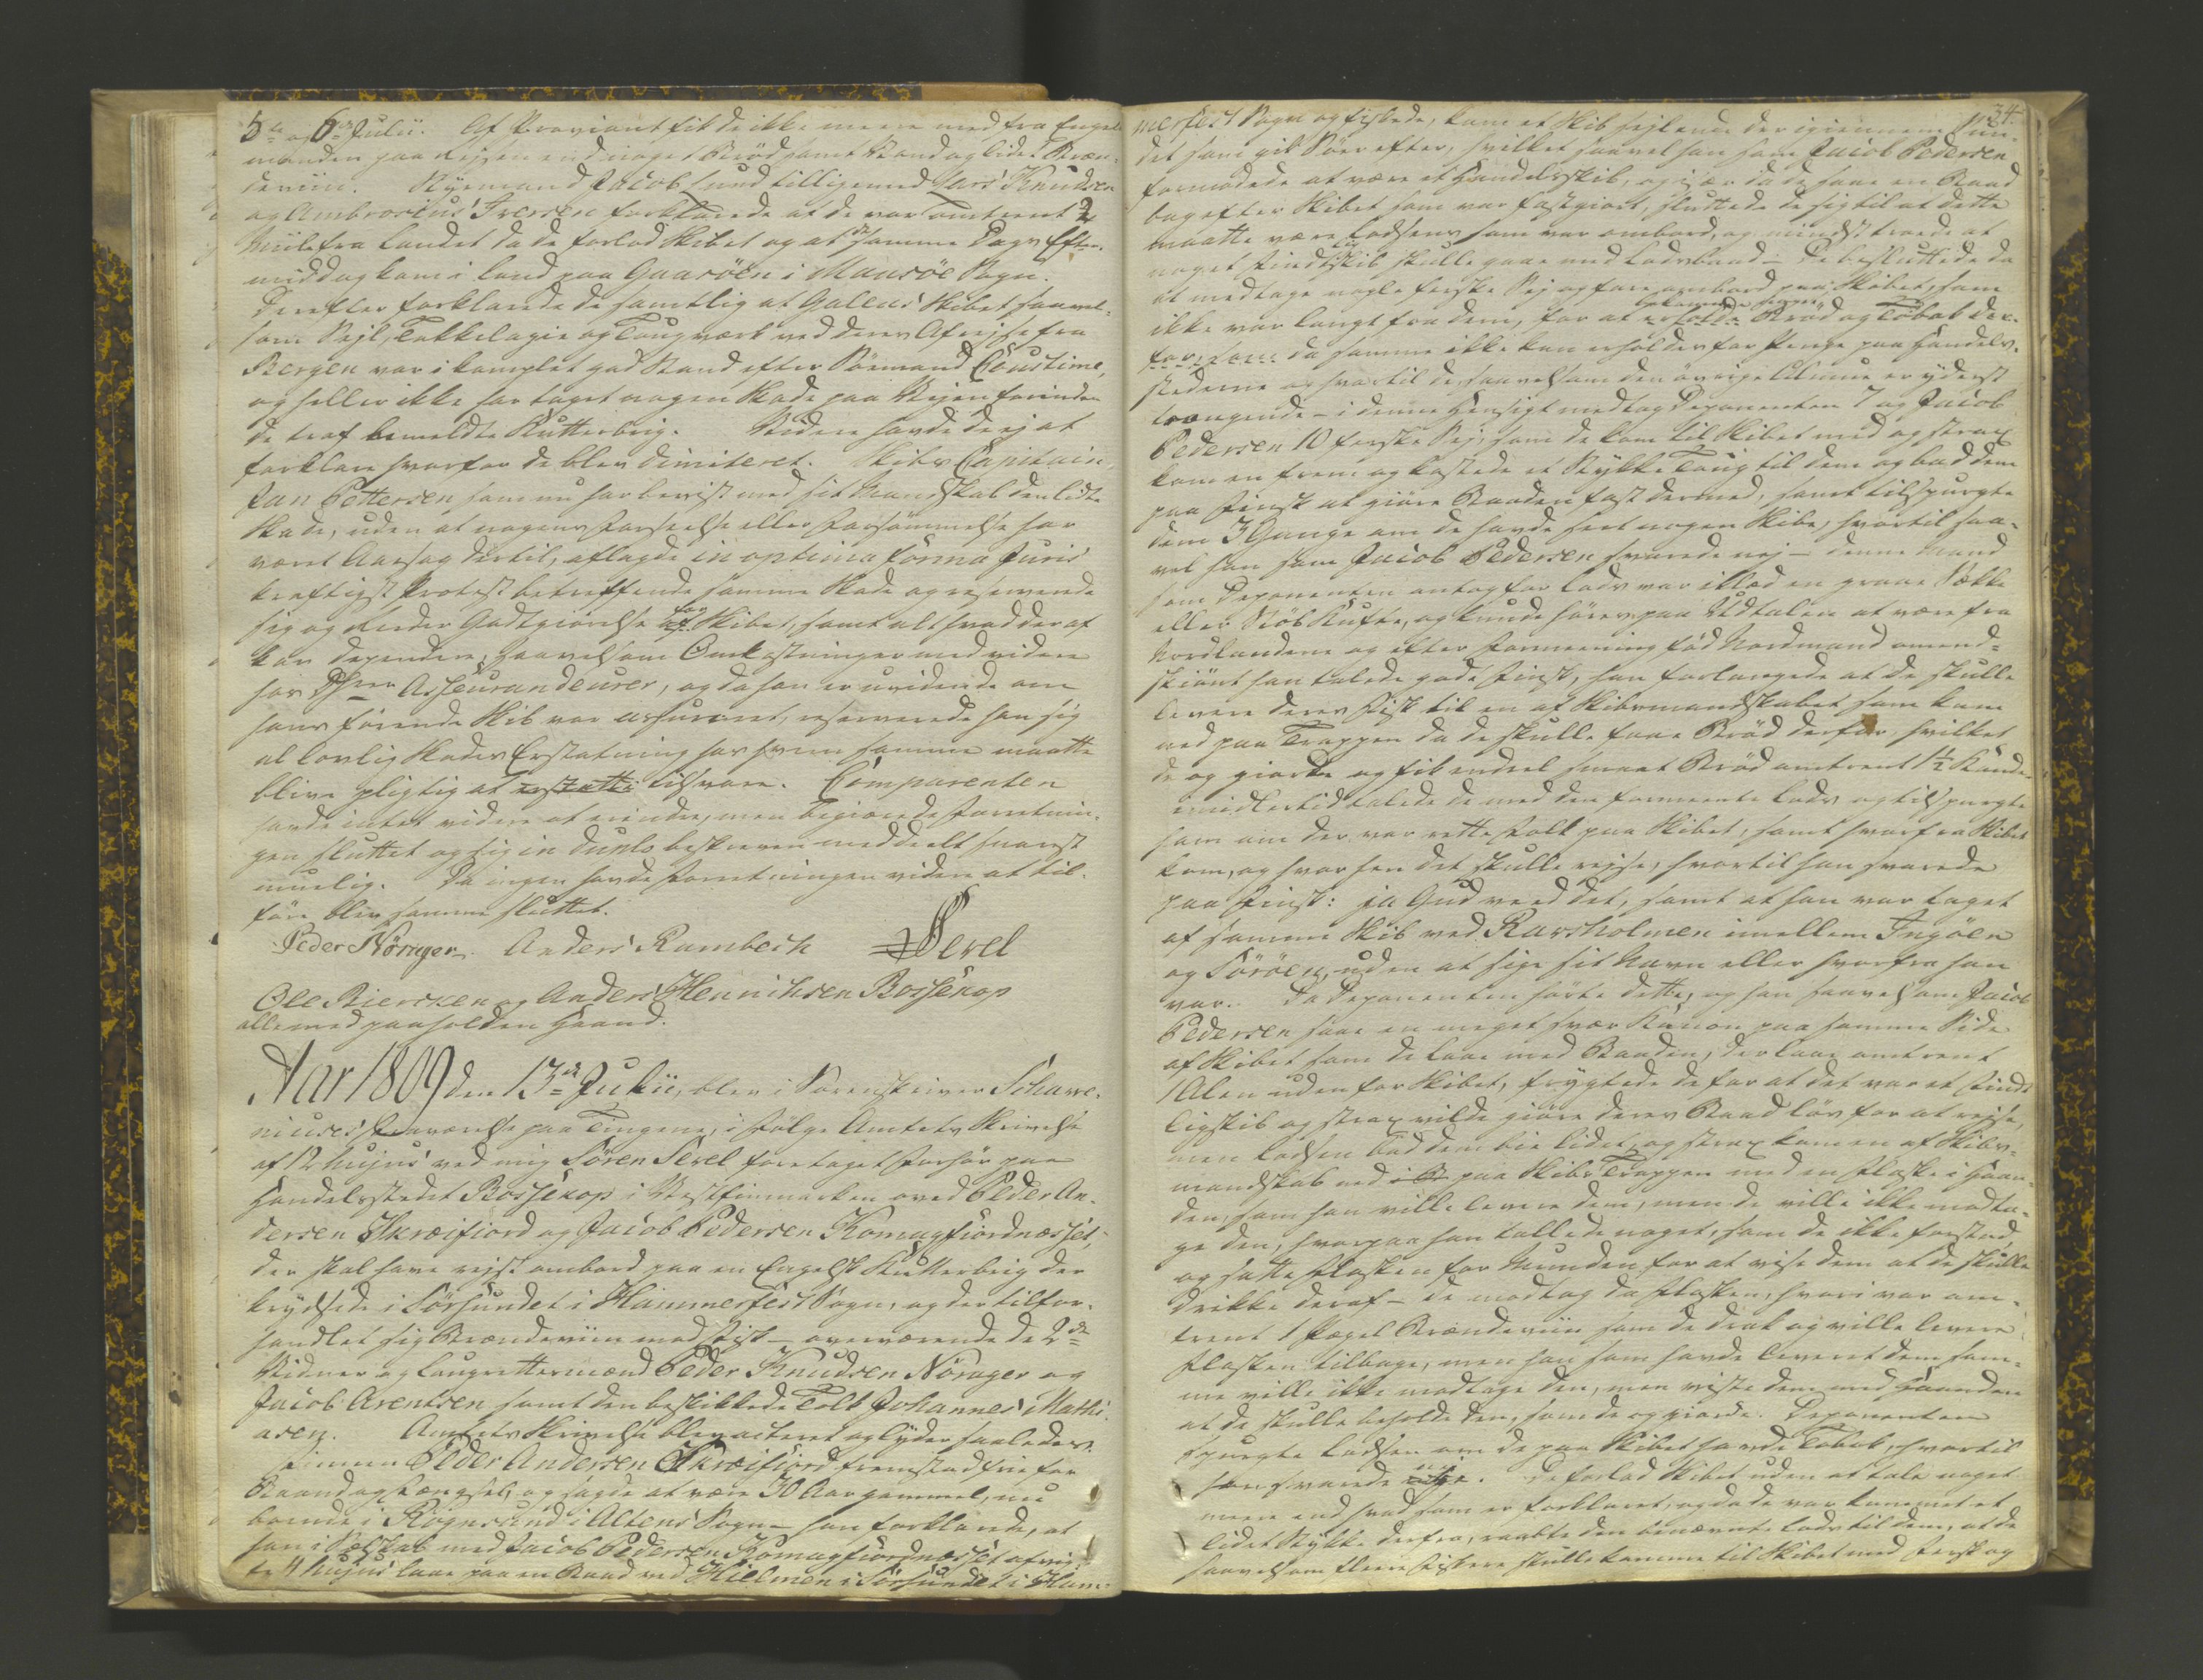 5te og 6te Julii. Af Proviant fik de ikke meere med fra Engel-
manden paa Rejsen end noget Brød samt Vand og lidet Bræn-
deviin. Styrmand Jacob Lund tilligemed Lars Knudsen
og Ambrosius Iversen forklarede at de var omtrent 2
Miile fra Landet da de forlod Skibet og at de samme Dags Efter-
middag kom i Land paa Gaasöen i Maasöe Sogn.
Derefter forklarede de samtlig at Galeas Skibet saavel-
som Sejl, Takkelagie og Tougværk ved deres Afrejse fra
Bergen var i komplet god Stand efter Sömand Coustime,
og heller ikke har taget nogen Skade paa Rejsen forinden
de traf bemeldte Kutterbrig. Videre havde de ej at
forklare hvorfor de blev dimiteret. Skibs Capitain
Jan Pettersen som nu har beviist med sit Mandskab den lidte
Skade, uden at nogens Forseelse eller Forsömmelse har
været Aarsag dertil, aflagde in optima forma Juris
kraftigst Protest betreffende samme Skade og reserverede
sig og Reeder Godtgiørelse for Skibet, samt alt hvad der af
kan dependere, saavelsom Omkostninger med videre
hos Hrr Asseurandeurer, og da han er uvidende om
hans förende Skib var assureret, reserverede han sig
al lovlig Skades Erstatning hos hvem samme maatte
blive pligtig at erstatte tilsvare. Comparenten
havde intet videre at erindre, men begiærede Forretnin-
gen sluttet og sig in duplo beskreven meddeelt snarest
muelig. Da ingen havde Forretningen videre at til-
före blev samme sluttet.
Peder Nörager Anders Rambech SSevel
Ole Riersen og Anders Henrichsen Bossekop
alle med paaholden Haand.
Aar 1809 den 13de Julii, blev i Sorenskriver Schawe-
niuses Fraværelse paa Tingene, i Fölge Amtets Skrivelse
af 12 hujus ved mig Sören Sevel foretaget Forhör paa
Handelsstedet Bossekop i Vestfinmarken over Peder An-
dersen Skreifiord og Jacob Pedersen Komagfiordnæsset,
der skal have rejst ombord paa en Engelsk Kutterbrig der
krydsede i Sörsundet i Hammerfest Sogn, og der tilfor-
handlet sig Brændeviin mod Fisk – overværende de 2de
Vidner og Laugrettesmænd Peder Knudsen Nörager og
Jacob Arentsen samt den beskikkede Tolk Johannes Mathi-
asen. Amtets Skrivelse blev acteret og lyder saaledes.
Finnen Peder Andersen Skreifiord fremstod frie for
Baand og Fængsel, og sagde at være 30 Aar gammel, nu
boende i Rognsund i Altens Sogn – han forklarede, at
han i Selskab med Jacob Pedersen Komagfiordnæsset afvig-
te 4 hujus laae paa en Baad ved Hielmen i Sörsundet i Ham-
34.
merfest Sogn og fiskede, kom et Skib sejlende der igiennem Sun-
det som gik Söer efter, hvilket saavel han som Jacob Pedersen
formodede at være et Handelsskib, og især da de saae en Baad
bag efter Skibet som var fastgiort, sluttede de sig til at dette
maatte være Lodsens som var ombord, og mindst troede at
noget Findtligskib skulle gaae med Lodsbaad – De besluttede da
at medtage nogle ferske Sej og fare ombord paa Skibet, som
ikke var langt fra dem, for at erholde Brød og Tobak der-
for, da samme ikke kan erholdes for Penge paa Handels-
stæderne og hvortil de saavelsom den övrige Almue er yderst
trængende – i denne Hensigt medtog Deponenten 7 og Jacob
Pedersen 10 ferske Sej, som de kom til Skibet med og strax
kom en frem og kastede et Stykke Toug til dem og bad dem
paa Finsk at giöre Baaden fast dermed, samt tilspurgte
dem 3 Gange om de havde seet nogen Skibe, hvortil saa-
vel han som Jacob Pedersen svarede nej – denne Mand
som Deponenten antog for Lods var iklæd en graae Pakke
eller Kufte, og kunde höres paa Udtalen at være fra
Nordlandene og efter Formeening fød Nordmand omend-
skiönt han talede gode Finsk, han forlangede at de skulle
levere deres Fisk til en af Skibsmandskabet som kom
ned paa Trappen da de skulle faae Brød derfor, hvilket
de og giorde og fik endeel smaat Brød omtrent 1½ Kande
imidlertid talede de med den formeente Lods og tilspurgte
ham om der var rette Folk paa Skibet, samt hvorfra Skibet
kom, og hvorhen det skulle rejse, hvortil han svarede
paa Finsk: ja Gud veed det, samt at han var taget
af samme Skib ved Ravsholmen imellem Ingöen
og Söröen, uden at sige sit Navn eller hvorfra han
var. Da Deponenten hörte dette, og han saavelsom Jacob
Pedersen saae en meget svær Kanon paa samme Side
af Skibet som de laae med Baaden, der laae omtrent
1 Alen uden for Skibet, frygtede de for at det var et Findt
ligskib og strax vilde giöre deres Baad lös for at rejse,
men Lodsen bad dem bie lidet, og strax kom en af Skibs-
mandskab ned paa Skibs Trappen med en Flaske i Haan-
den, som han ville levere dem, men de ville ikke modta-
ge den, hvorpaa han tallede noget, som de ikke forstod,
og satte Flasken for Munden for at vise dem at de skulle
drikke deraf – de modtog da Flasken, hvori var om-
trent 1 Pægel Brændeviin som de drak og ville levere
Flasken tilbage, men han som havde leveret dem sam-
me ville ikke modtage den, men viste dem med Haanden
at de skulle beholde den, som de og giorde. Deponenten
spurgte Lodsen om de paa Skibet havde Tobak, hvortil
han svarede nej. De forlod Skibet uden at tale noget
meere end hvad som er forklaret, og da de var kommet et
lidet Stykke derfra, raabte den benævnte Lods til dem, at de
saavelsom fleere Fiskere skulle komme til Skibet med Fersk og